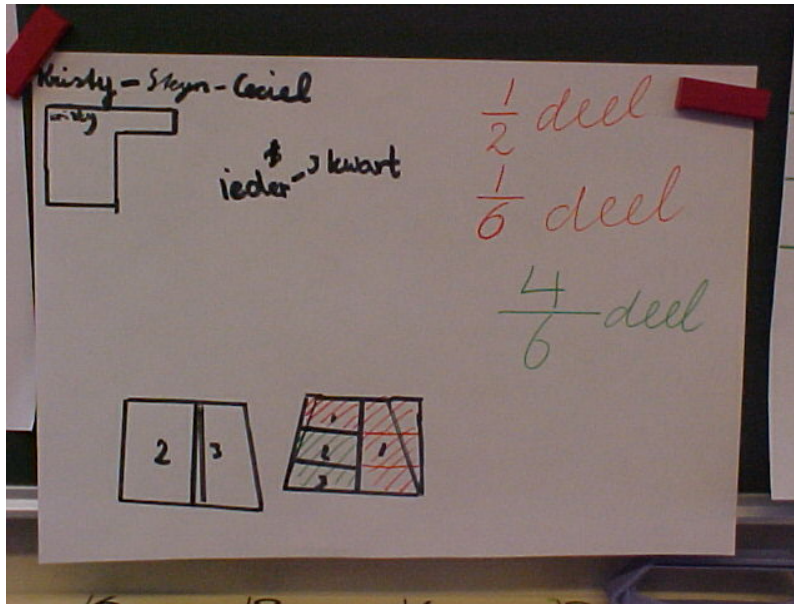 Kristy - Stijn - Ceciel
kristy
ieder - 3 kwart
1/2 deel
1/6 deel
4/6 deel
2 3
1
2 1
3